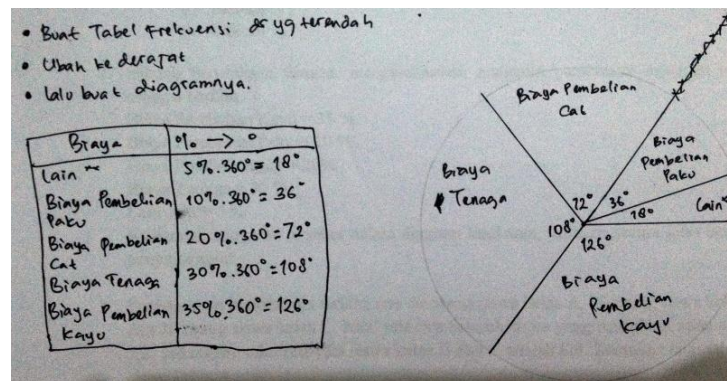 • Buat Tabel Frekuensi dr yg terendah
• Ubah ke derajat
• lalu buat diagramnya.
Biaya % → °
Lain" 5%.360°= 18°
Biaya Pembelian Paku 10%.360°= 36°
Biaya Pembelian Cat 20%.360°=72°
Biaya Tenaga 30%.360°=108°
Biaya Pembelian Kayu 35%.360°=126°
Biaya Pembelian
Cat
Biaya
Pembelian
Paku
Biaya
Tenaga
Lain"
72° 36°
18°
108°
126°
Biaya
Pembelian
Kayu